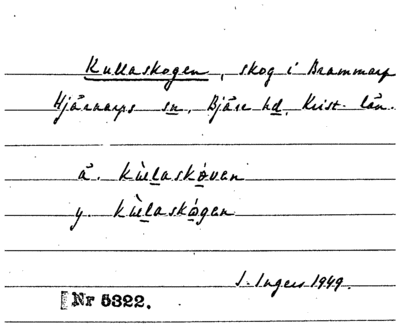 Kullaskogen, skog i Brammarp
Hjärnarps sn, Bjäre hd, Krist. län.
ä. kùlaskóven
y. kùlaskógen
I. Ingers 1949.
Nr 5322.